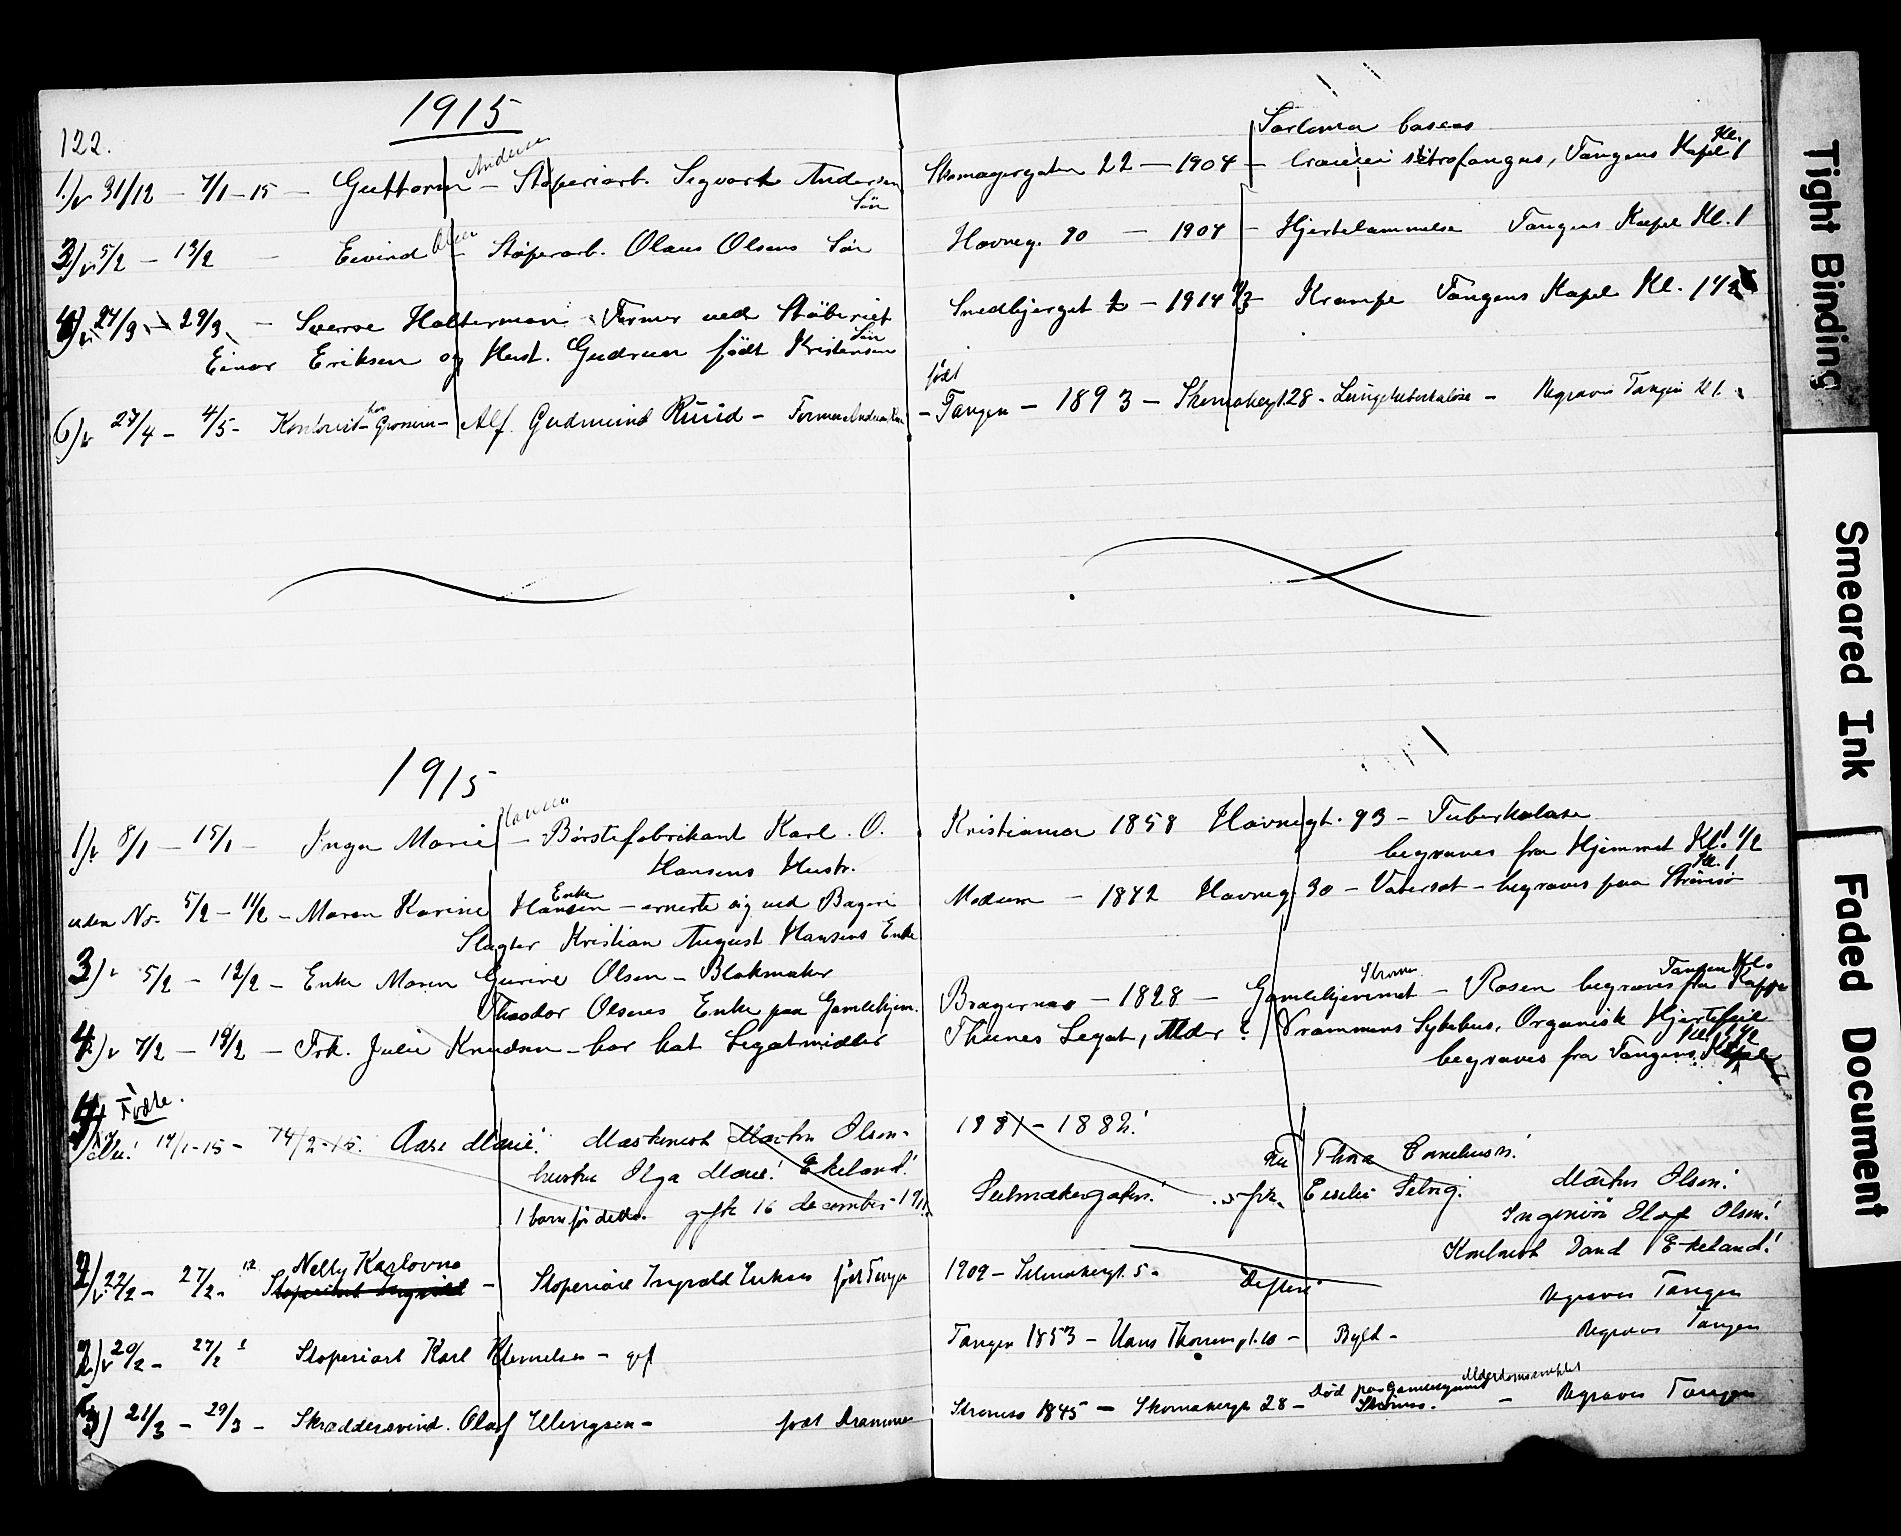 122.
1915
Sarkoma baseos
1.) v 31/12 - 7/1 - 15 - Guttorm Andersen - Støperiarb. Sigvart Andersen Søn
Skomagergaten 22 - 1904 - cranii Tangens Kapel Kl. 1
3) v 5/2 - 13/2 - Eivind Olsen - Støperarb. Olaus Olsens Søn
Havneg. 80 - 1904 - Hjertelammelse Tangens Kapel Kl. 1
v 24/3 29/3 - Sverre Halterman Former ved Støberiet
Snedbjerget 2 - 1914 Krampe Tangens Kapel Kl. 1 1/2
Einar Eriksen og Hust. Gudrun født Kristensen Søn
6) v 27/4 - 4/5 - Kontorist hos - Alf Gudmund Ruud - Former
født Tangen - 1893 - Skomakergt 28 - Lungetuberkulose - Begraves Tangen kl 1
1915
1) v 8/1 - 15/1 - Inga Marie Hansen - Børstefabrikant Karl O. Hansens Hustr.
Kristiania 1858 Havnegt. 93 - Tuberkulose
begraves fra Hjemmet Kl. 1 1/2
uden No. 5/2 - 11/2 - Maren Karine Hansen Enke - ernerte sig ved Bageri
Modum - 1842 Havneg. 30 - Vatersot - begraves paa Strømsø Kl. 1
Slagter Kristian August Hansens Enke
3) v 5/2 - 12/2 - Enke Maren Gurine Olsen - Blokmaker
Theodor Olsens Enke paa Gamlehjem.
Bragernes - 1828 - Gamlehjemmet Strømsø - Rosen begraves fra Tangen
4) v 7/2 - 19/2 - Frk. Julie Knudsen - har hat Legatmidler
Thunes Legat, Alder ? Drammens Sykehus. Organisk Hjertefeil
begraves fra Tangens Kapel
Fødte.
17/1-15 - 14/2-15. Aase Marie! Maskinist Martin Olsen -
1881 - 1882!
hustru Olga Marie! Ekeland!
Fru Thora Cornelius
1 barn før dette. gift 16 december 1911
Selmakergaten! 5 frk. Martin Olsen!
Ingeniør Olaf Olsen!
Kontorist David Ekeland!
2) v 22/2 - 27/2 - Nelly Karlovna - Støperiarb Ingvald født Tangen
1909 - Selmakergt. 5 - Difteri Begraves Tangen
v 20/2 - 27/2 Støperiarb Karl Klemetsen - gift
Tangen 1853 - Hans Thommesgt. 10 - Byld - Begraves Tangen
21/3 - 29/3 - Skræddersvend. Olaf Ellingsen - født Drammen
Strømsø 1845 - Skomakergt 28 - Død paa Gamlehjemmet Strømsø. Alderdomssvækkelse - Begraves Tangen
Tight Binding
Smeared Ink
Faded Document